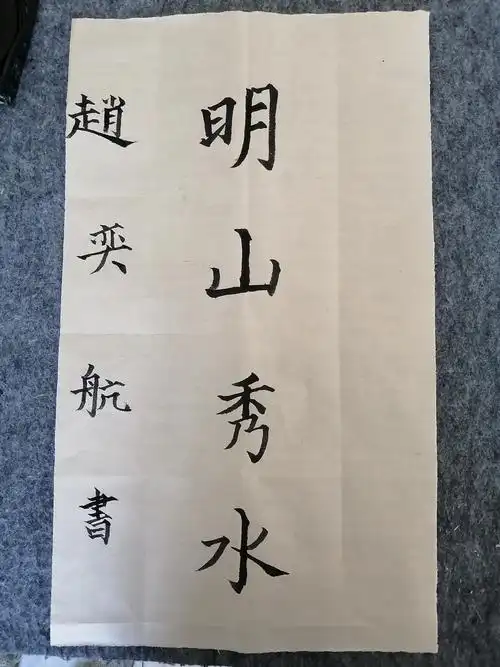 明山秀水
趙奕航書